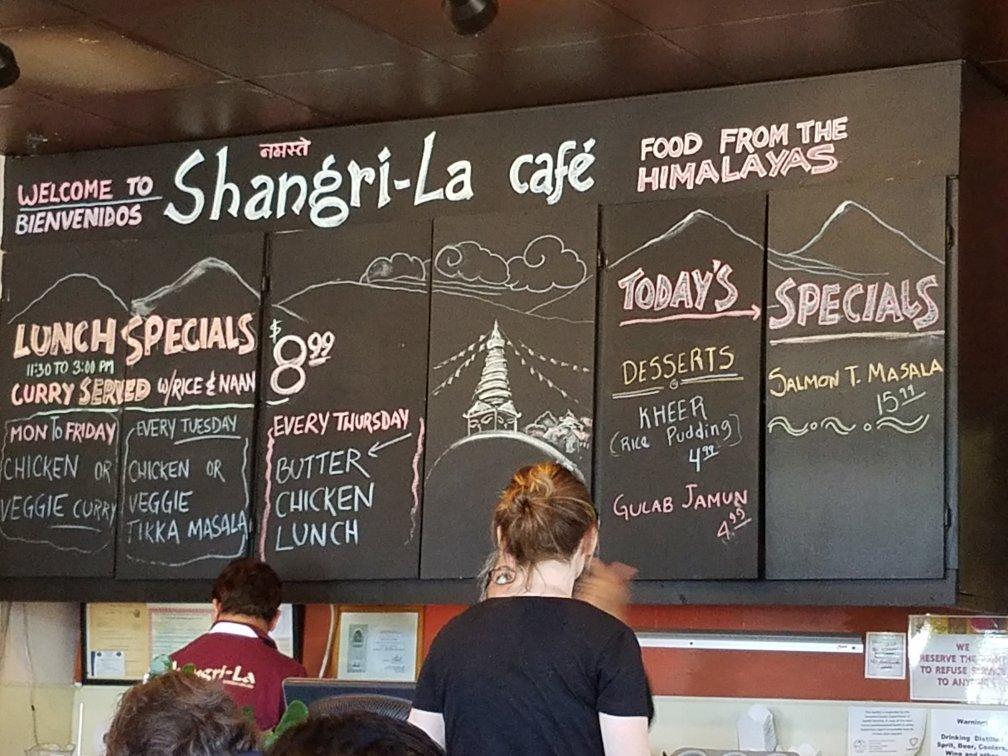 नमस्ते
WELCOME TO
BIENVENIDOS
Shangri-La café
FOOD FROM THE
HIMALAYAS
LUNCH SPECIALS
11:30 TO 3:00 PM
CURRY SERVED W/RICE & NAAN
$8.99
MON to FRIDAY
CHICKEN OR
VEGGIE CURRY
EVERY TUESDAY
CHICKEN OR
VEGGIE
TIKKA MASALA
EVERY THURSDAY
BUTTER
CHICKEN
LUNCH
TODAY'S
DESSERTS
KHEER
(Rice Pudding)
4.99
GULAB JAMUN
4.99
SPECIALS
SALMON T. MASALA
15.99
Shangri-La
WE
RESERVE THE RIGHT
TO REFUSE SERVICE
TO
Warning
Drinking Distilled
Spirit, Beer, Coolers
Wine and other